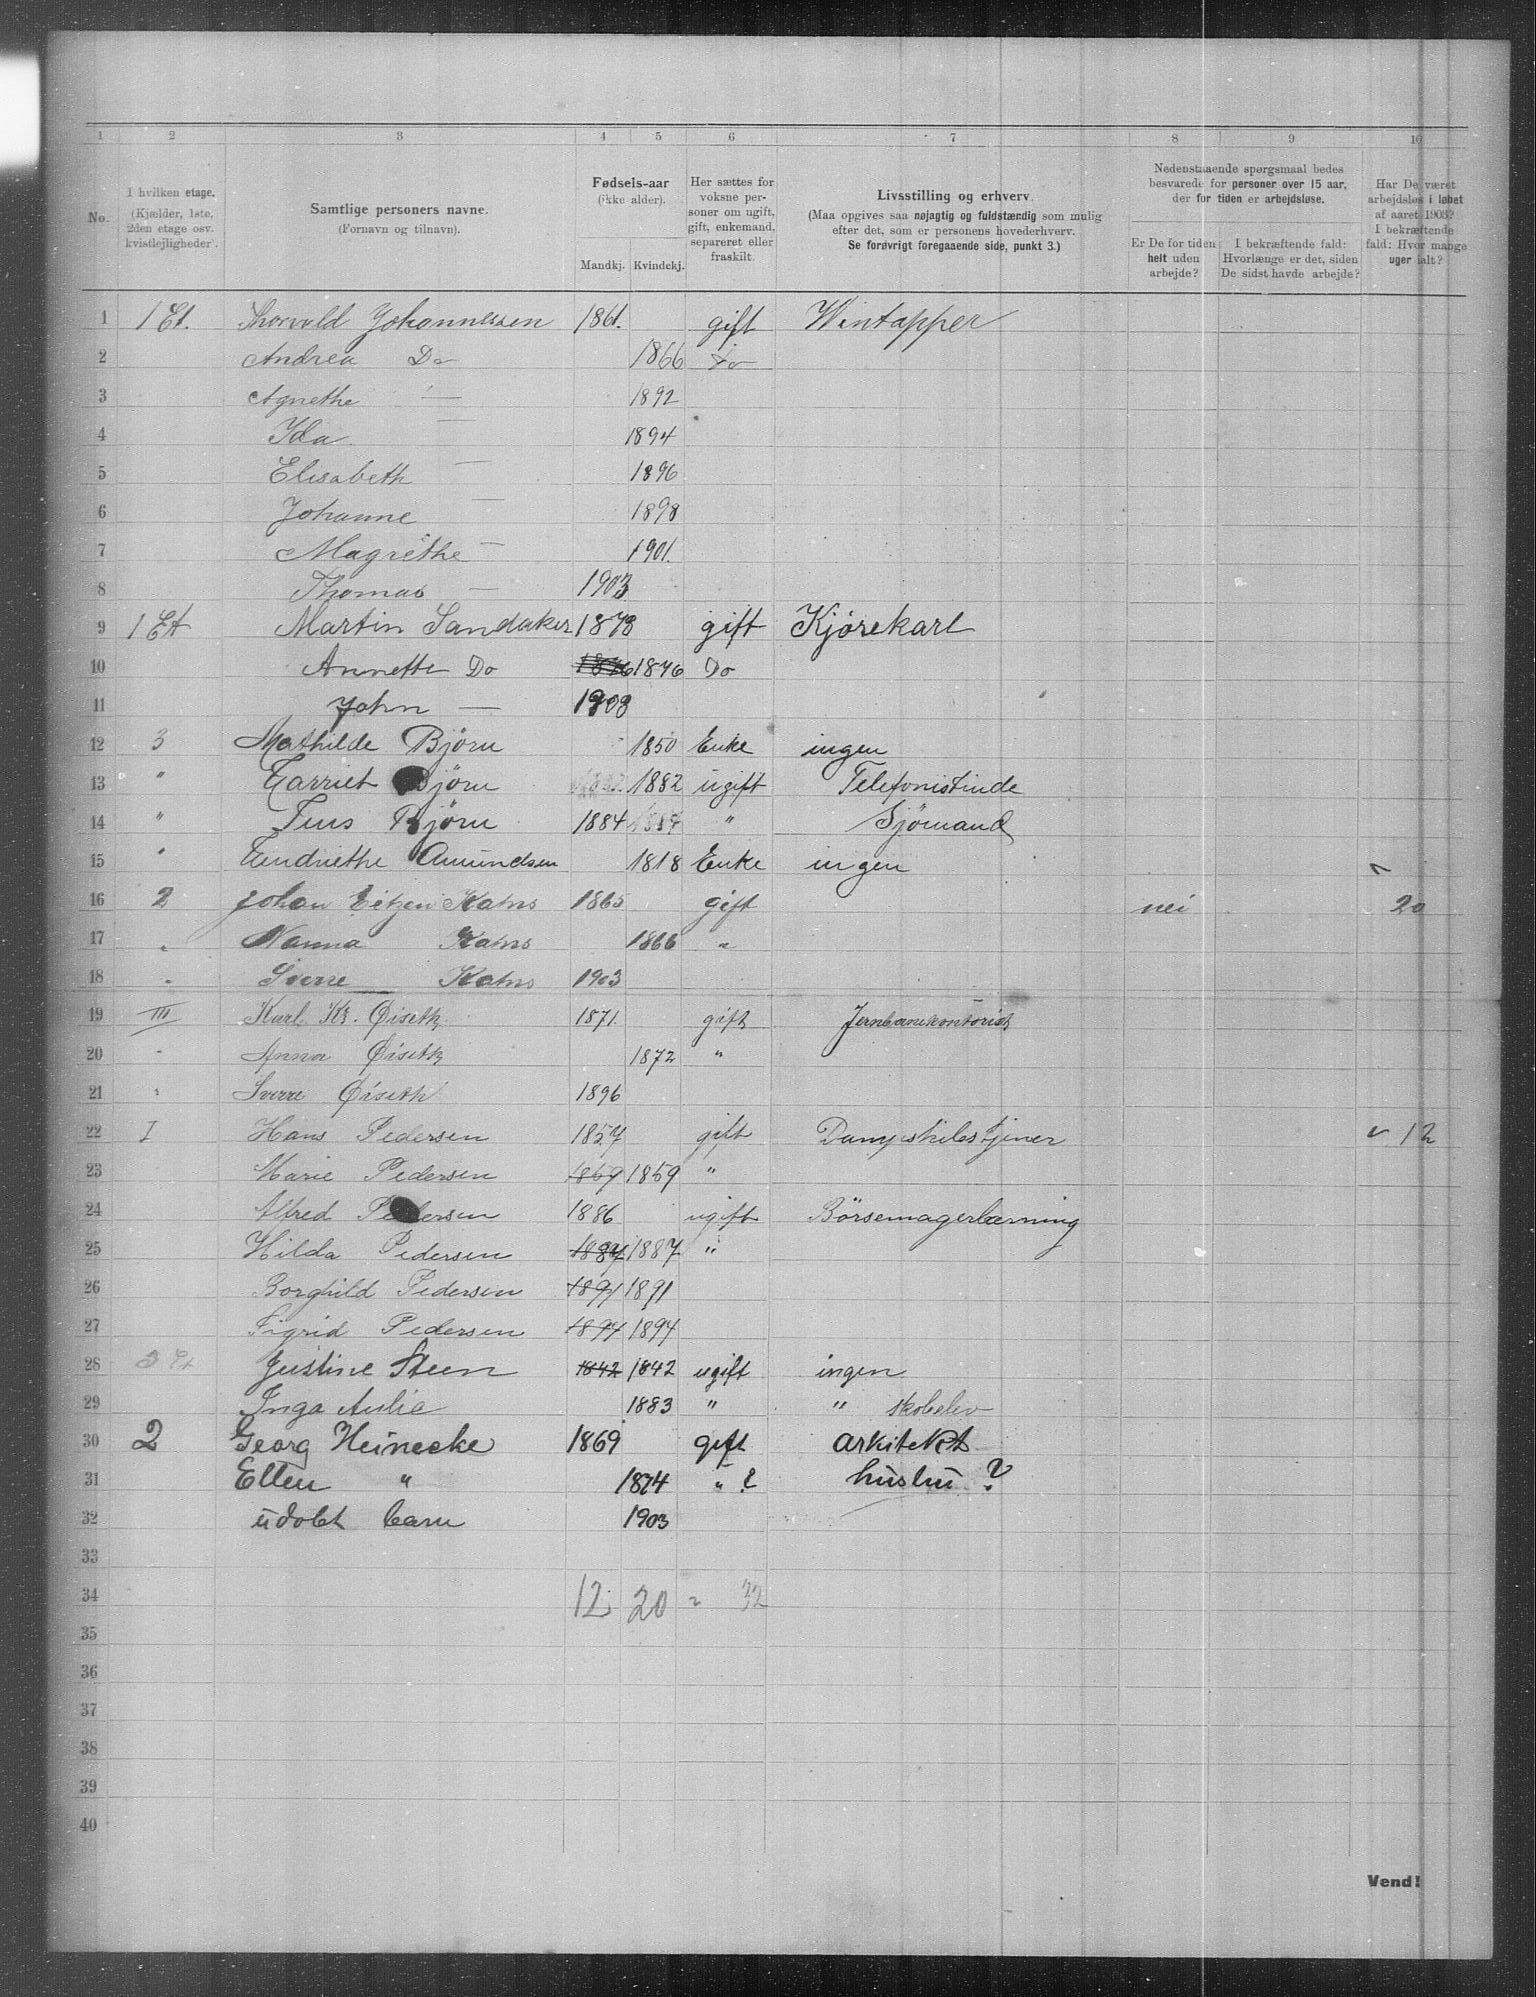 1 2 3 4 5 6 7 8 9 10
No. I hvilken etage. (Kjælder, 1ste, 2den etage osv. kvistlejligheder). Samtlige personers navne. (Fornavn og tilnavn). Fødsels-aar (ikke alder). Mandkj. Kvindekj. Her sættes for voksne personer om ugift, gift, enkemand, separeret eller fraskilt. Livsstilling og erhverv. (Maa opgives saa nøjagtig og fuldstændig som mulig efter det, som er personens hovederhverv. Se forøvrigt foregaaende side, punkt 3.) Nedenstaaende spørgsmaal bedes besvarede for personer over 15 aar, der for tiden er arbejdsløse. Er De for tiden helt uden arbejde? I bekræftende fald: Hvorlænge er det, siden De sidst havde arbejde? Har De været arbejdsløs i løbet af aaret 1903? I bekræftende fald: Hvor mange uger ialt?
1 1 Et. Thorvald Johannessen 1861. gift Wintapper
2 Andrea Do 1866 Do
3 Agnethe — 1892
4 Ida — 1894
5 Elisabeth — 1896
6 Johanne — 1898
7 Magrethe — 1901.
8 Thomas — 1903
9 1 Et Martin Sandaker 1878 gift Kjørekarl
10 Annette Do 1876 1876 Do
11 John — 1903
12 3 Mathilde Bjørn 1850 Enke ingen
13 " Harriet Bjørn 1882 1882 ugift Telefonistinde
14 " Jens Bjørn 1884 1884 " Sjømand
15 " Hendriethe Amundsen 1818 Enke ingen
16 2 Johan Eitzen Kahrs 1865 gift nei 20
17 " Nanna Kahrs 1866 "
18 " Sverre Kahrs 1903
19 III Karl Kr. Øiseth 1871. gift Jernbanekontorist
20 " Anna Øiseth 1872 "
21 " Sverre Øiseth 1896
22 I Hans Pedersen 1857 gift Dampskibstjener v 12
23 Marie Pedersen 1859 1859 "
24 Alfred Pedersen 1886 ugift Børsemagerlærning
25 Hilda Pedersen 1887 1887 "
26 Borghild Pedersen 1891 1891
27 Sigrid Pedersen 1894 1894
28 3 Et Justine Steen 1842 1842 ugift ingen
29 Inga Aulie 1883 " " skoelev
30 2 Georg Heinecke 1869 gift arkitekt
31 Ellen " 1874 " ? hustru ?
32 udøbt barn 1903
33
34 12 20 = 32
35
36
37
38
39
40
Vend!